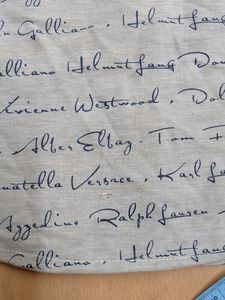 Galliano. Helmut Lang
Galliano Helmut Lang Don
Vivienne Westwood. Dol
. Alber Elbaz. Tom F
natella Versace. Karl La
Azzedine Ralph Lauren
Galliano. Helmut Lang